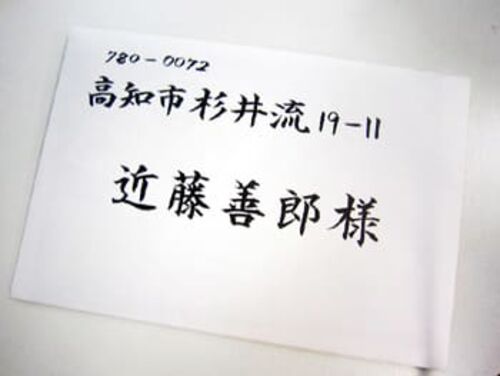 780-0072
高知市杉井流19-11
近藤善郎様